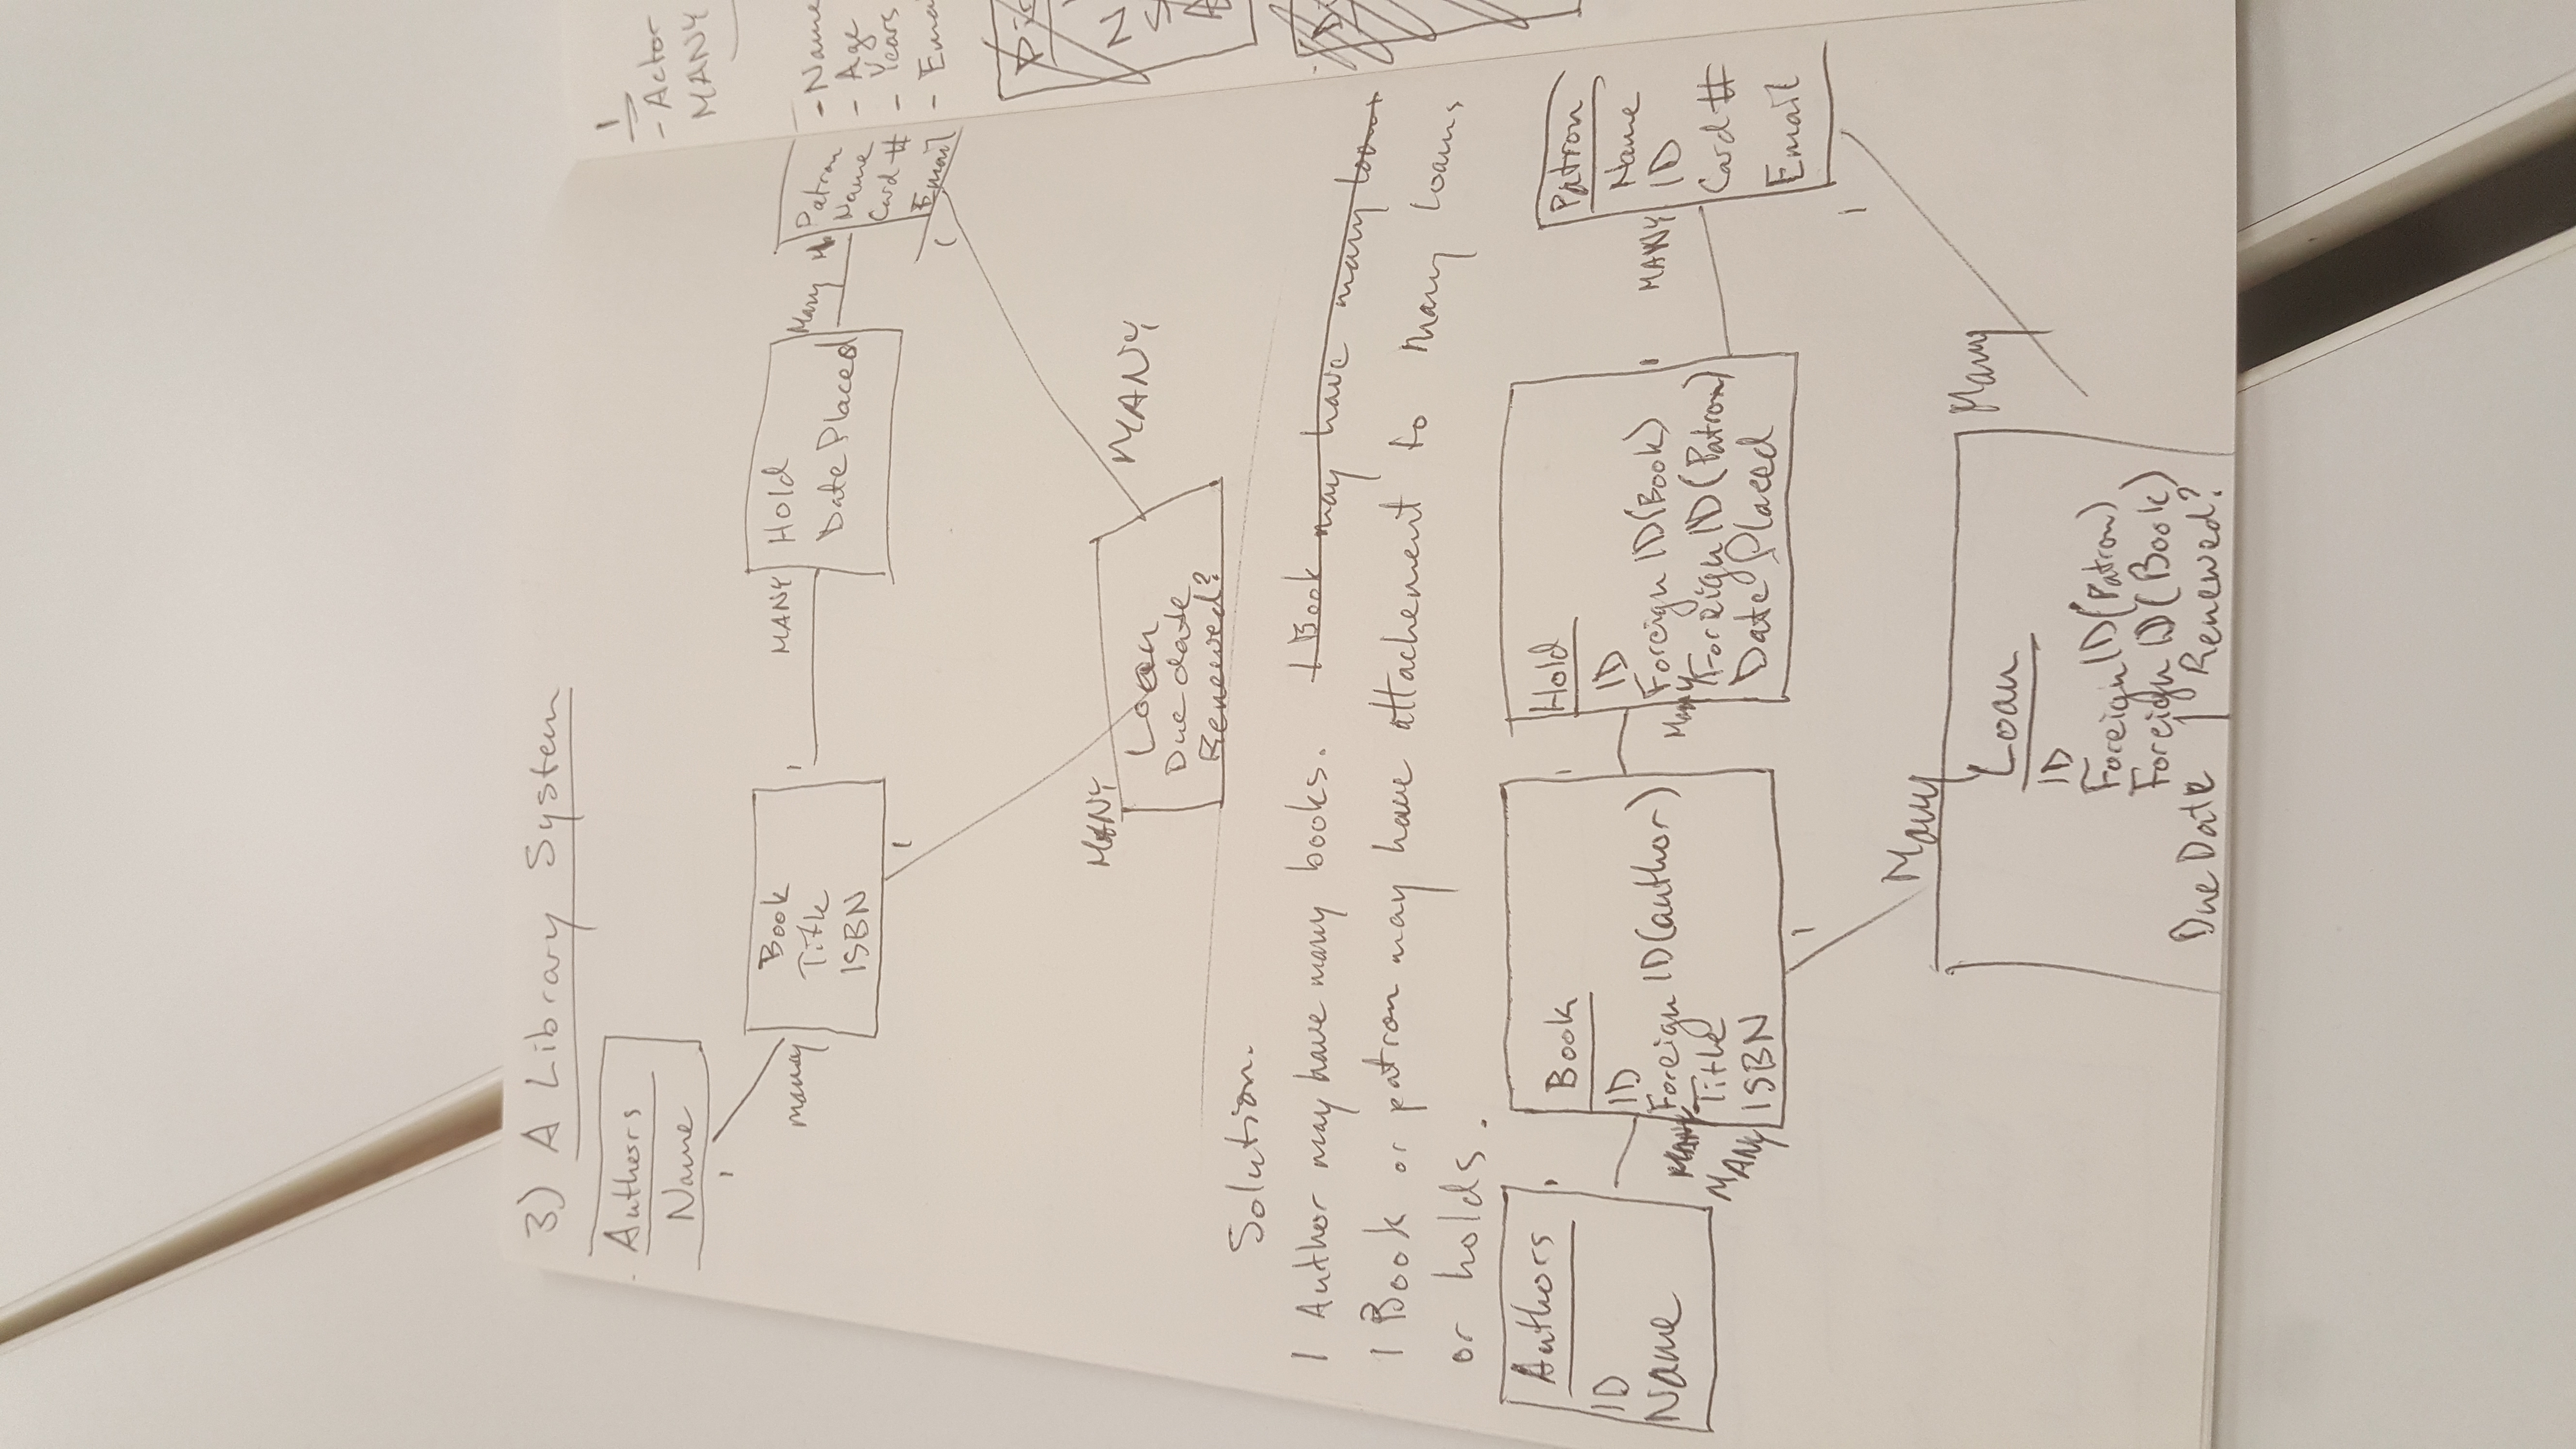 3) A Library System
Authors
Name
1
many
Book
Title
ISBN
1
MANY
Hold
Date Placed
Many
Patron
Name
Card #
Email
1
1
MANY
MANY
Loan
Due date
Renewed?
Solution.
1 Author may have many books. 1 Book may have many loans
1 Book or patron may have attachement to many loans
or holds.
Authors
ID
Name
1
MANY
MANY
Book
ID
Foreign ID (author)
Title
ISBN
1
Many
Hold
ID
Foreign ID (Book)
Foreign ID (Patron)
Date Placed
1
MANY
Patron
Name
ID
Card #
Email
1
1
Many
Many
Loan
ID
Foreign ID (Patron)
Foreign ID (Book)
Due Date | Renewed?
1
- Actor
MANY
- Name
- Age
- Years